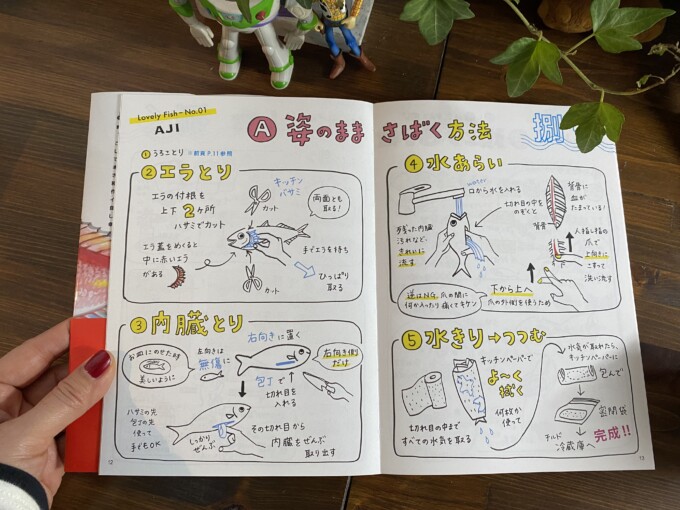 Lovely Fish-No.01
AJI
Ⓐ 姿のまま さばく方法
捌
① うろことり ※前頁P.11参照
② エラとり
エラの付根を
上下2ヶ所
ハサミでカット
キッチン
バサミ
カット
両面とも
取る!
エラ蓋をめくると
中に赤いエラ
がある
手でエラを持ち
ひっぱり
取る
カット
③ 内臓とり
お皿にのせた時
美しいように
左向きは
無傷に
右向きに置く
右向き側
だけ
包丁で
切れ目を
入れる
ハサミの先
包丁の先
使って
手でもOK
しっかり
ぜんぶ
その切れ目から
内臓をぜんぶ
取り出す
12
④ 水あらい
water
口から水を入れる
切れ目の中を
のぞくと
残った内臓
汚れなど、
きれいに
流す
背骨に
血が
たまっている!
背骨
人指し指の
爪で
上向きに
こすって
洗い流す
逆はNG 爪の間に
何か入ったり痛くてキケン
下から上へ
爪の外側を使うため
⑤ 水きり→つつむ
キッチンペーパーで
よ〜く
拭く
何枚か
使って
切れ目の中まで
すべての水気を取る
水気が取れたら、
キッチンペーパーに
包んで
密閉袋
チルド
冷蔵庫へ
完成!!
13